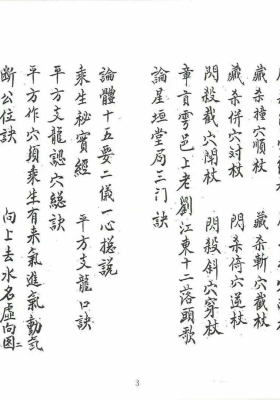 藏殺撞穴順杖　藏杀斬穴截杖
藏杀併穴対杖　閃杀倚穴逆杖
閃殺截穴閉杖　閃殺斜穴穿杖
章貢雩邑上老劉江東十二落頭歌
論星垣堂局三门訣
論體十五要二儀一心樞説
乘生祕寶經　平方支龍口訣
平方支龍認穴總訣
平方作穴須乘生有来氣進氣動気
断公位訣　向上去水名虛向因二
3